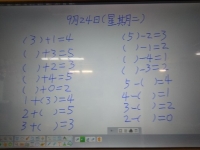 9月24日(星期二)
(3)+1=4
( )+3=5
( )+2=3
( )+4=5
( )+0=2
1+(3)=4
2+( )=5
3+( )=3
(5)-2=3
( )-1=2
( )-4=1
( )-3=
5-( )=4
4-( )=1
3-( )=2
2-( )=0